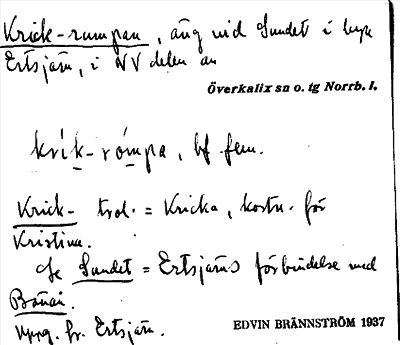 Krick-rumpan, äng vid Sundet i byn
Ertsjärv, i NV delen av
Överkalix sn o. tg Norrb. l.
krík-rómpa, bf fem.
Krick- trol. = Kricka, kortn. för
Kristina.
Se Sundet = Ertsjärvs förbindelse med
Bönan.
Uppg. fr. Ertsjärv.
EDVIN BRÄNNSTRÖM 1937